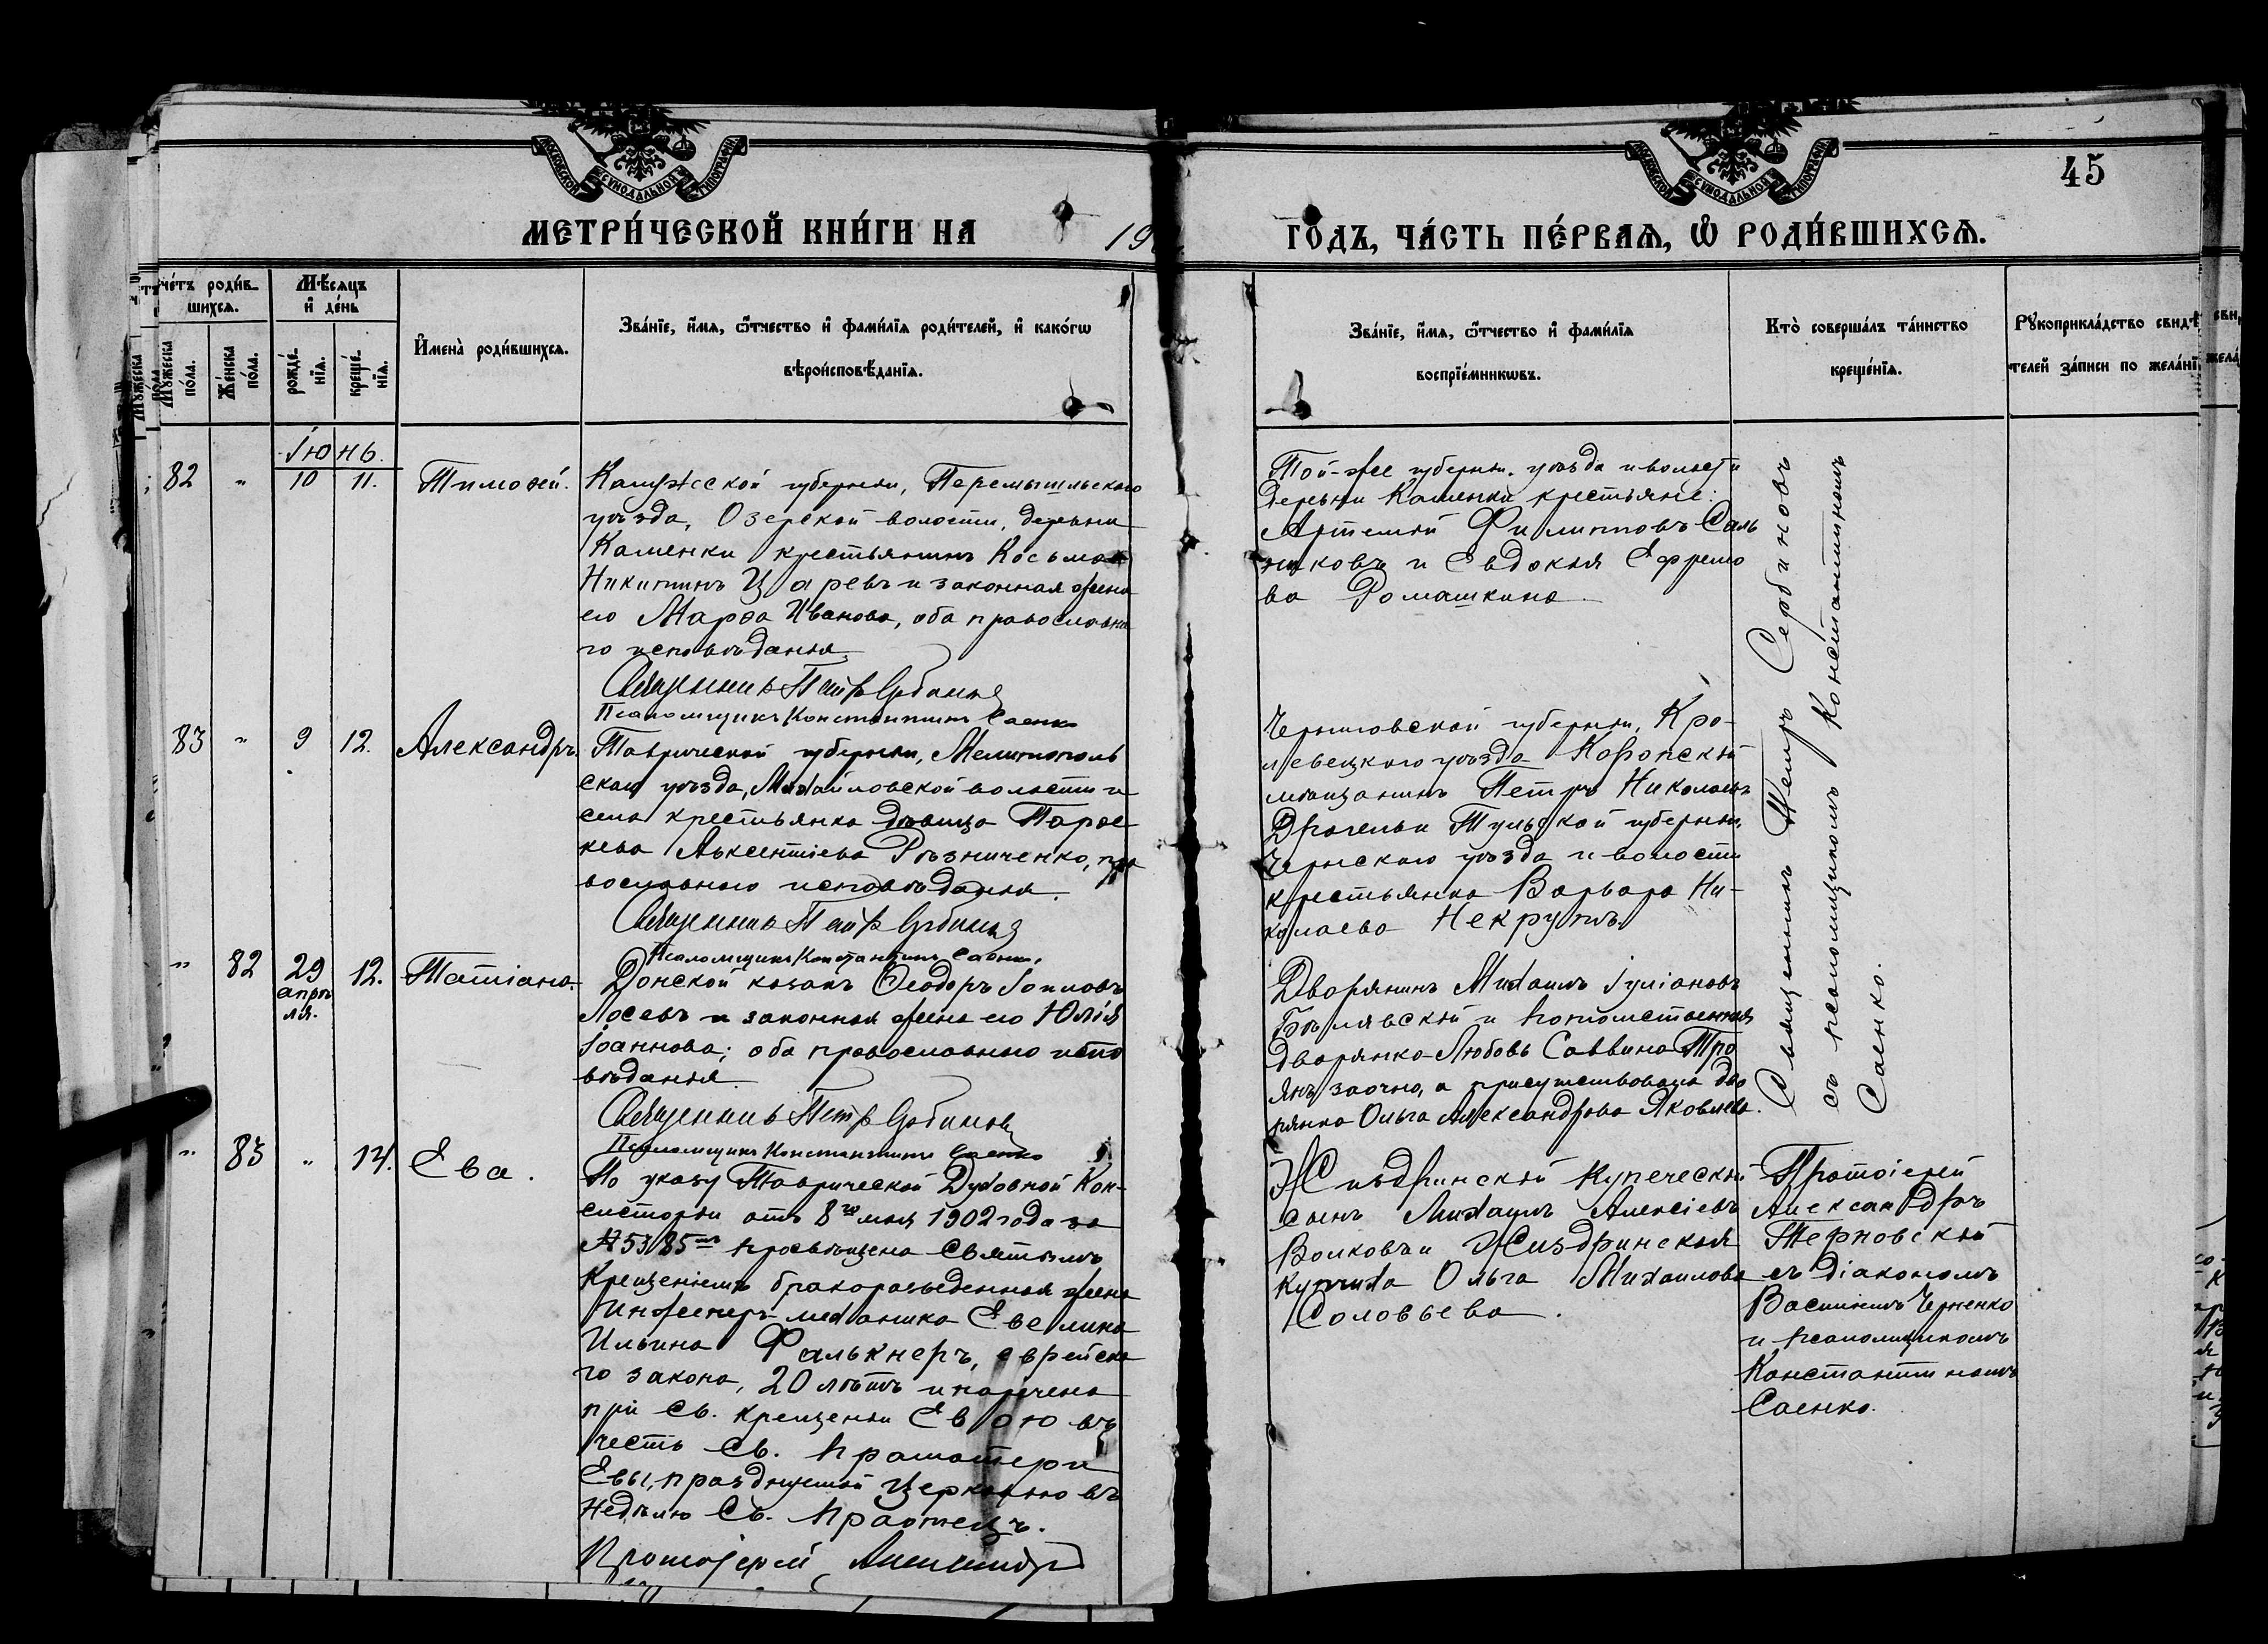 МОСКОВСКОЙ СѴНОДАЛЬНОЙ ТИПОГРАФІИ
МЕТРИ́ЧЕСКОЙ КНИ́ГИ НА 19
МОСКОВСКОЙ СѴНОДАЛЬНОЙ ТИПОГРАФІИ
45
ГО́ДЪ, ЧА́СТЬ ПЕ́РВАѦ, Ѡ҆ РОДИ́ВШИХСѦ.
че́тъ роди́в-
шихсѧ.
Мѣ́сѧцъ
и҆ де́нь
Мꙋ́жеска
по́ла.
Же́нска
по́ла.
рожде́-
нїѧ.
креще́-
нїѧ.
И҆мена̀ роди́вшихсѧ.
Зва́нїе, и҆́мѧ, ѻ҆́тчество и҆ фами́лїѧ роди́телей, и҆ како́гѡ
вѣроисповѣ́данїѧ.
Зва́нїе, и҆́мѧ, ѻ҆́тчество и҆ фами́лїѧ
воспрїе́мникѡвъ.
Кто̀ соверша́лъ та́инство
креще́нїѧ.
Рꙋкоприкла́дство свидѣ́
телей за́писи по жела́нї
Іюнь.
82 " 10 11. Тимоѳей.
Калужской губерніи, Перемышльскаго
уѣзда, Озерской волости, деревни
Каменки крестьянинъ Косьма
Никитинъ Царевъ и законная жена
его Марѳа Иванова, оба православна
го исповѣданія.
Священникъ Петръ Сербиновъ
Псаломщикъ Константинъ Саенко
Той-же губерніи, уѣзда и волости
деревни Каменки крестьяне:
Артемій Филипповъ Саль
никовъ и Евдокія Ефремо
ва Ромашкина
83 " 9 12. Александръ.
Таврической губерніи, Мелитополь
скаго уѣзда, Михайловской волости и
села крестьянка дѣвица Парас
кева Авксентіева Рѣзниченко, пра
вославнаго исповѣданія.
Священникъ Петръ Сербиновъ
Псаломщикъ Константинъ Саенко.
Черниговской губерніи, Кро-
левецкаго уѣзда Коропскій
мѣщанинъ Петръ Николаевъ
Тульской губерніи,
Чернскаго уѣзда и волости
крестьянка Варвара Ни-
колаева Некрутъ.
" 82 29 апрѣ
ля. 12. Татіана.
Донской казакъ Ѳеодоръ Іоиловъ
Лосевъ и законная жена его Юлія
Іоаннова; оба православнаго испо
вѣданія.
Священникъ Петръ Сербиновъ
Псаломщикъ Константинъ Саенко
Дворянинъ Михаилъ Іуліановъ
Бѣлявскій и потомственная
дворянка Любовь Саввина Тро
янъ заочно, а присутствовала дво
рянка Ольга Александрова Яковлева.
Священникъ Петръ Сербиновъ
съ псаломщикомъ Константиномъ
Саенко.
" 83 " 14. Ева.
По указу Таврической Духовной Кон-
систоріи отъ 8го мая 1902 года за
№ 5385мъ просвѣщена Святымъ
Крещеніемъ бракоразведенная жена
Инженеръ-механика Евелина
Ильина Фалькнеръ, еврейска
го закона, 20 лѣтъ и наречена
при Св. крещеніи Евою въ
честь Св. праматери
Евы, празднуемой Церковью въ
недѣлю Св. Праотецъ.
Протоіерей Александръ
Жиздринскій Купеческій
сынъ Михаилъ Алексіевъ
Волковъ и Жиздринская
купчиха Ольга Михаилова
Соловьева.
Протоіерей
Александръ
Терновскій
съ діакономъ
Василіемъ Черненко
и псаломщикомъ
Константиномъ
Саенко.